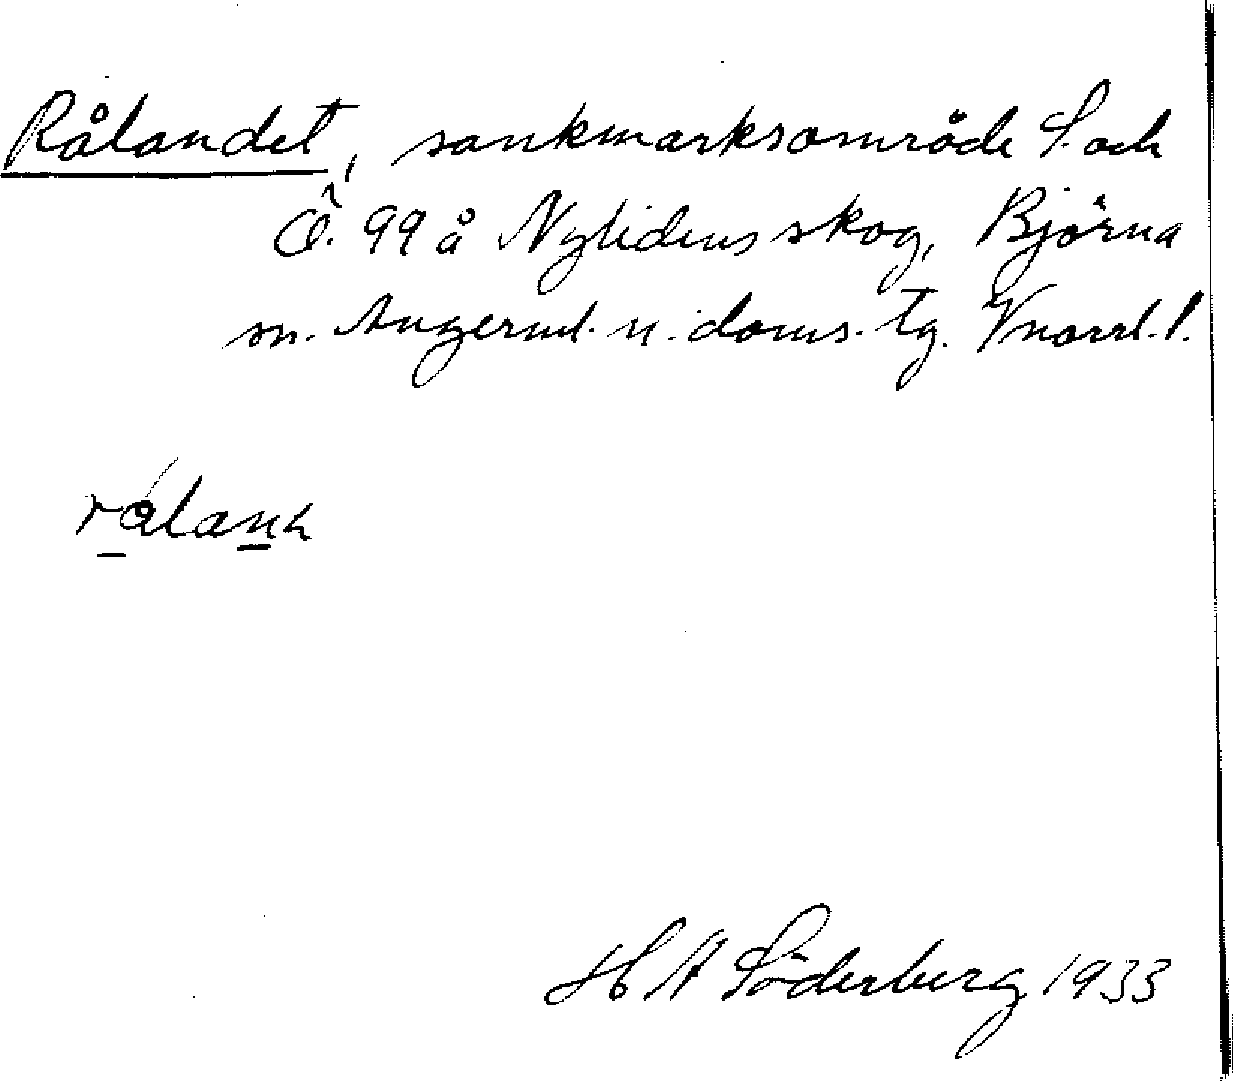 Rålandet, sankmarksområde S. och
Ö. 99 å Nylidens skog, Björna
sn. Ångerml. n. doms. tg. Vnorrl. l.
rålanh
H A Söderberg 1933